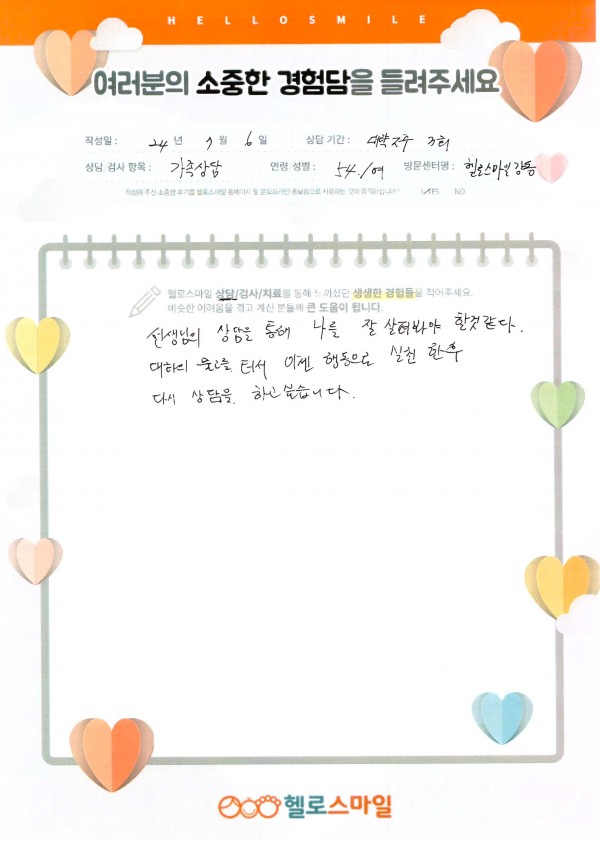 HELLOSMILE
여러분의 소중한 경험담을 들려주세요
작성일 : 24 년 7 월 6 일 상담 기간 : 3회
상담/검사 항목 : 가족상담 연령/성별 : 54./여 방문센터명 : 헬로스마일강동
작성해 주신 소중한 후기를 헬로스마일 홈페이지 및 온오프라인 홍보용으로 사용하는 것에 동의하십니까? YES NO
헬로스마일 상담/검사/치료를 통해 느끼셨던 생생한 경험들을 적어주세요.
비슷한 어려움을 겪고 계신 분들께 큰 도움이 됩니다.
선생님의 상담을 통해 나를 잘 살펴봐야 할것같다.
대화의 물고를 터서 이젠 행동으로 실천 한후
다시 상담을 하고싶습니다.
헬로스마일